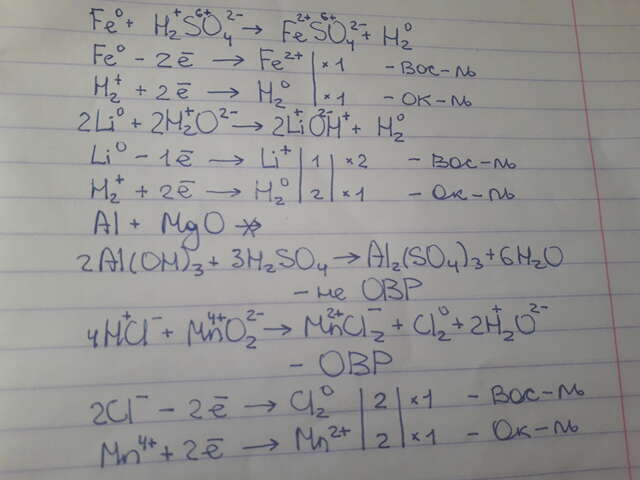 Fe⁰ + H₂⁺S⁶⁺O₄²⁻ → Fe²⁺S⁶⁺O₄²⁻ + H₂⁰
Fe⁰ - 2ē → Fe²⁺ | ×1 - Вос-ль
H₂⁺ + 2ē → H₂⁰ | ×1 - Ок-ль
2Li⁰ + 2H₂⁺O²⁻ → 2Li⁺O²⁻H⁺ + H₂⁰
Li⁰ - 1ē → Li⁺ | 1 | ×2 - Вос-ль
H₂⁺ + 2ē → H₂⁰ | 2 | ×1 - Ок-ль
Al + MgO ↛
2Al(OH)₃ + 3H₂SO₄ → Al₂(SO₄)₃ + 6H₂O
- не ОВР
4H⁺Cl⁻ + Mn⁴⁺O₂²⁻ → Mn²⁺Cl₂⁻ + Cl₂⁰ + 2H₂⁺O²⁻
- ОВР
2Cl⁻ - 2ē → Cl₂⁰ | 2 | ×1 - Вос-ль
Mn⁴⁺ + 2ē → Mn²⁺ | 2 | ×1 - Ок-ль